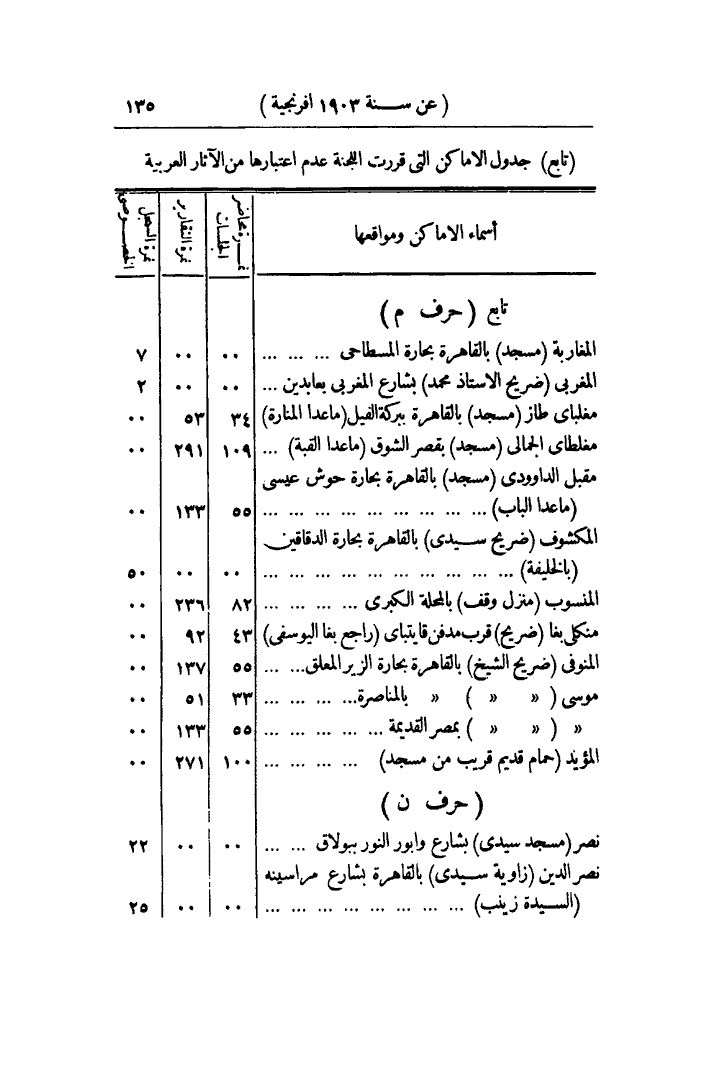 ( عن سنة ١٩٠٣ افرنجية )
١٣٥
(تابع) جدول الاماكن التى قررت اللجنة عدم اعتبارها من الآثار العربية
أسماء الاماكن ومواقعها
نمرة محاضر الجلسات
نمرة التقارير
نمرة السجل الخصوصى
تابع ( حرف م )
المغاربة (مسجد) بالقاهرة بحارة المسطاحى ... ... ... ٠٠ ٠٠ ٧
المغربى (ضريح الاستاذ محمد) بشارع المغربى بعابدين ... ٠٠ ٠٠ ٢
مغلباى طاز (مسجد) بالقاهرة ببركة الفيل (ماعدا المنارة) ٣٤ ٥٣ ٠٠
مغلطاى الجمالى (مسجد) بقصر الشوق (ماعدا القبة) ... ١٠٩ ٢٩١ ٠٠
مقبل الداوودى (مسجد) بالقاهرة بحارة حوش عيسى
(ماعدا الباب) ... ... ... ... ... ... ... ... ... ٥٥ ١٣٣ ٠٠
المكشوف (ضريح سيدى) بالقاهرة بحارة الدقاقين
(بالخليفة) ... ... ... ... ... ... ... ... ... ... ٠٠ ٠٠ ٥٠
المنسوب (منزل وقف) بالمحلة الكبرى ... ... ... ... ٨٢ ٢٣٦ ٠٠
منكلى بغا (ضريح) قرب مدفن قايتباى (راجع بغا اليوسفى) ٤٣ ٩٢ ٠٠
المنوفى (ضريح الشيخ) بالقاهرة بحارة الزير المعلق... ... ٥٥ ١٣٧ ٠٠
موسى ( » » ) » بالمناصرة... ... ... ... ٣٣ ٥١ ٠٠
» ( » » ) بمصر القديمة ... ... ... ... ... ٥٥ ١٣٣ ٠٠
المؤيد (حمام قديم قريب من مسجد) ... ... ... ... ١٠٠ ٢٧١ ٠٠
( حرف ن )
نصر (مسجد سيدى) بشارع وابور النور ببولاق ... ... ٠٠ ٠٠ ٢٢
نصر الدين (زاوية سيدى) بالقاهرة بشارع مراسينه
(السيدة زينب) ... ... ... ... ... ... ... ... ٠٠ ٠٠ ٢٥